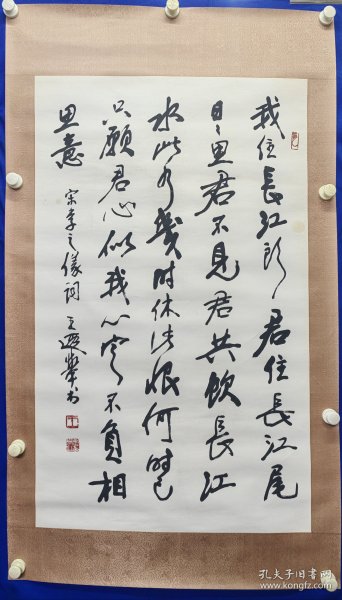 我住長江头君住長江尾
日〻思君不見君共飲長江
水此水幾时休此恨何时已
只願君心似我心定不負相
思意
宋李之儀词 王遐舉书
孔夫子旧书网
www.kongfz.com